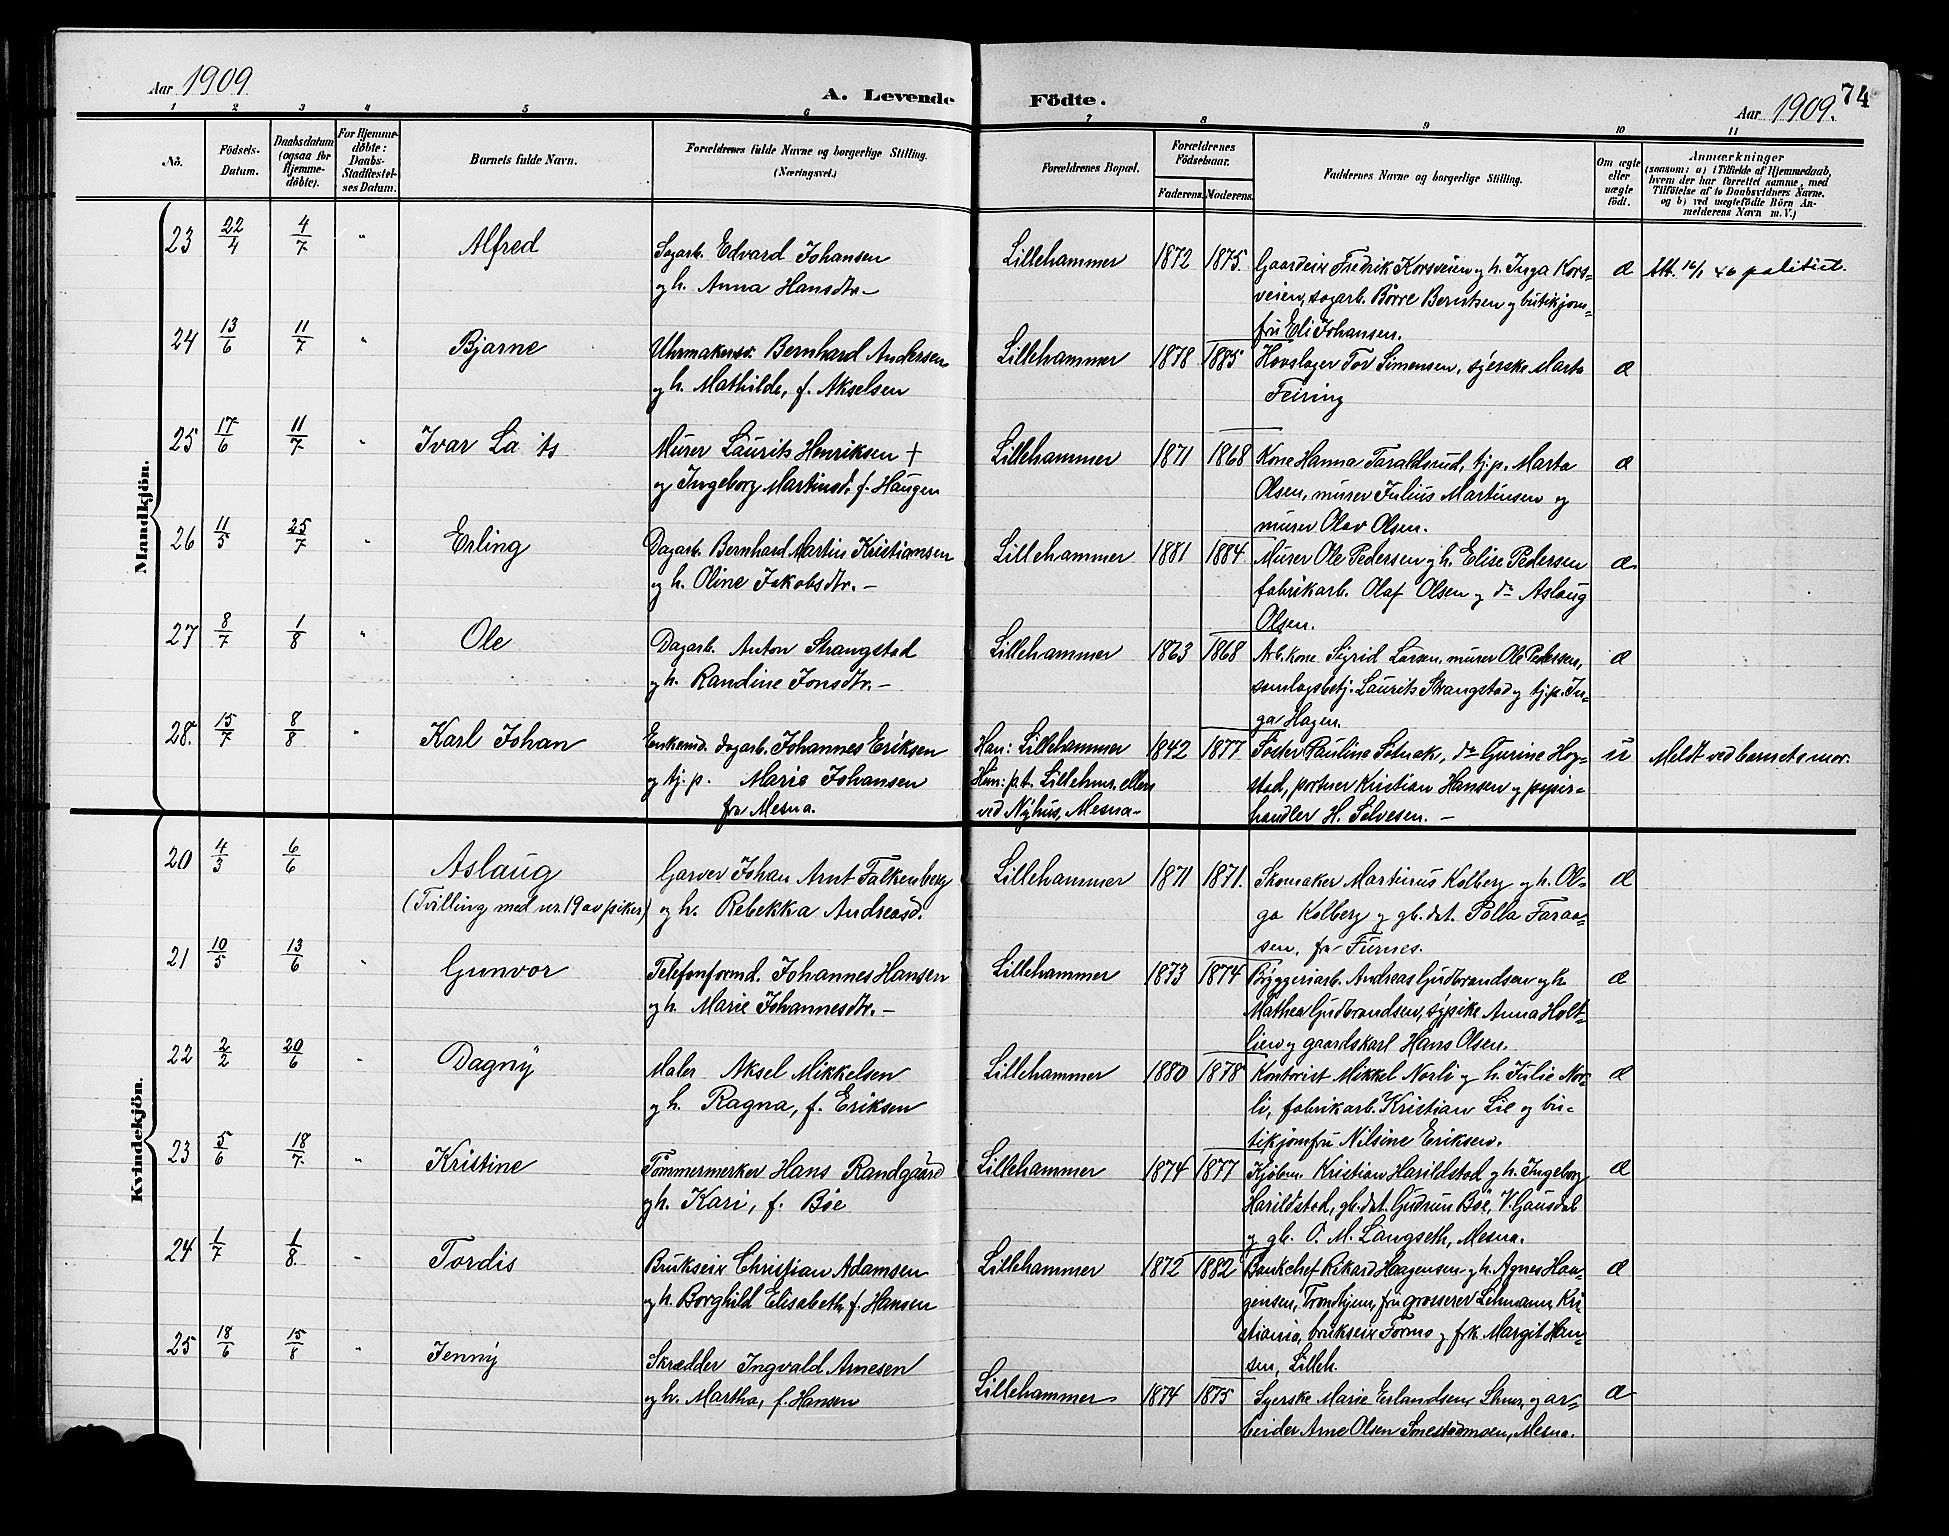 Aar 1909
A. Levende Födte.
Aar 1909.
74
1 2 3 4 5 6 7 8 9 10 11
No.
Födsels-Datum.
Daabsdatum (ogsaa for Hjemmedöbte).
For Hjemmedöbte: Daabs-Stadfæstelses Datum.
Barnets fulde Navn.
Forældrenes fulde Navne og borgerlige Stilling. (Næringsvei.)
Forældrenes Bopæl.
Forældrenes Födselsaar.
Faderens. Moderens.
Faddernes Navne og borgerlige Stilling.
Om ægte eller uægte født.
Anmærkninger
(saasom: a) i Tilfælde af Hjemmedaab, hvem der har forrettet samme, med Tilföielse af to Daabsvidners Navne. og b) ved uægtefödte Börn Anmelderens Navn m. V.)
Mandkjön.
23 22/4 4/7 " Alfred Sagarb. Edvard Johansen Lillehammer 1872 1875. Gaardeier Fredrik Korsveien og h. Inga Kors- æ Att. 16/1 46 politiet.
og h. Anna Hansdtr. - veien, sagarb. Börre Berntsen og butikjom-
fru Eli Johansen.
24 13/6 11/7 " Bjarne Uhrmakersv. Bernhard Andersen Lillehammer 1878 1885 Hovslager Tor Simensen, syerske Marta æ
og h. Mathilde, f. Akselsen Feiring
25 17/6 11/7 " Ivar La its Murer Laurits Henriksen + Lillehammer 1871 1868 Kone Hanna Taraldsrud, tj.p. Marta æ
og Ingeborg Martinsd. f. Haugen Olsen, murer Julius Martinsen og
murer Olav Olsen.
26 11/5 25/7 " Erling Dagarb. Bernhard Martin Kristiansen Lillehammer 1881 1884 Murer Ole Pedersen og h. Elise Pedersen æ
og h. Oline Jakobsdtr. - fabrikarb. Olaf Olsen og do Aslaug
Olsen.
27 8/7 1/8 " Ole Dagarb. Anton Strangstad Lillehammer 1863 1868 Arb.kone Sigrid Larsen, murer Ole Pedersen, æ
og h. Randine Jonsdtr. - samlagsbetj. Laurits Strangstad og tj.p. In-
ga Hagen.
28. 15/7 8/8 " Karl Johan Enkemd. dagarb. Johannes Eriksen Han: Lillehammer 1842 1877 Söster Pauline Solnak, do Gurine Hog- u Meldt ved barnets mor.
og tj.p. Marie Johansen Hun: p.t. Lillehmr. ellers stad, portner Kristian Hansen og papir-
fra Mesna. ved Nyhus, Mesna- handler H. Selvesen. -
Kvindekjön.
20 4/3 6/6 Aslaug Garver Johan Arnt Falkenberg Lillehammer 1871 1871. Skomaker Martinus Kolberg og h. Ol- æ
(Tvilling med nr. 19 av piker) og h. Rebekka Andreasd. ga Kolberg og gb.dat. Polla Faraa-
sen, fra Furnes.
21 10/5 13/6 " Gunvor Telefonformd. Johannes Hansen Lillehammer 1873 1874 Bryggeriarb. Andreas Gudbrandsen og h. æ
og h. Marie Johannesdtr. - Mathea Gudbrandsen, sypike Anna Holt-
lien og gaardskarl Hans Olsen.
22 2/2 20/6 " Dagny Maler Aksel Mikkelsen Lillehammer 1880 1878 Kontorist Mikkel Norli og h. Julie Nor- æ
og h. Ragna, f. Eriksen li, fabrikarb. Kristian Lie og bu-
tikjomfru Nilsine Eriksen.
23 5/6 18/7. " Kristine Tömmermerker Hans Randgaard Lillehammer 1874 1877 Kjöbm. Kristian Harildstad og h. Ingeborg æ
og h. Kari, f. Böe Harildstad, gb.dat. Gudrun Böe, V. Gausdal
og gb. O. M. Langseth, Mesna.
24 1/7 1/8. " Tordis Brukseier Christian Adamsen Lillehammer 1872 1882 Bankchef Rikard Haagensen og h. Agnes Haa- æ
og h. Borghild Elisabeth, f. Hansen gensen, Trondhjem, fru grosserer Lehmann, Kri
stiania, brukseier Formo og frk. Margit Han-
sen, Lilleh.
25 18/6 15/8 " Jenny Skrædder Ingvald Arnesen Lillehammer 1874 1875 Syerske Marie Erlandsen og ar- æ
og h. Martha, f. Hansen beider Arne Olsen Smestadmoen, Mesna.